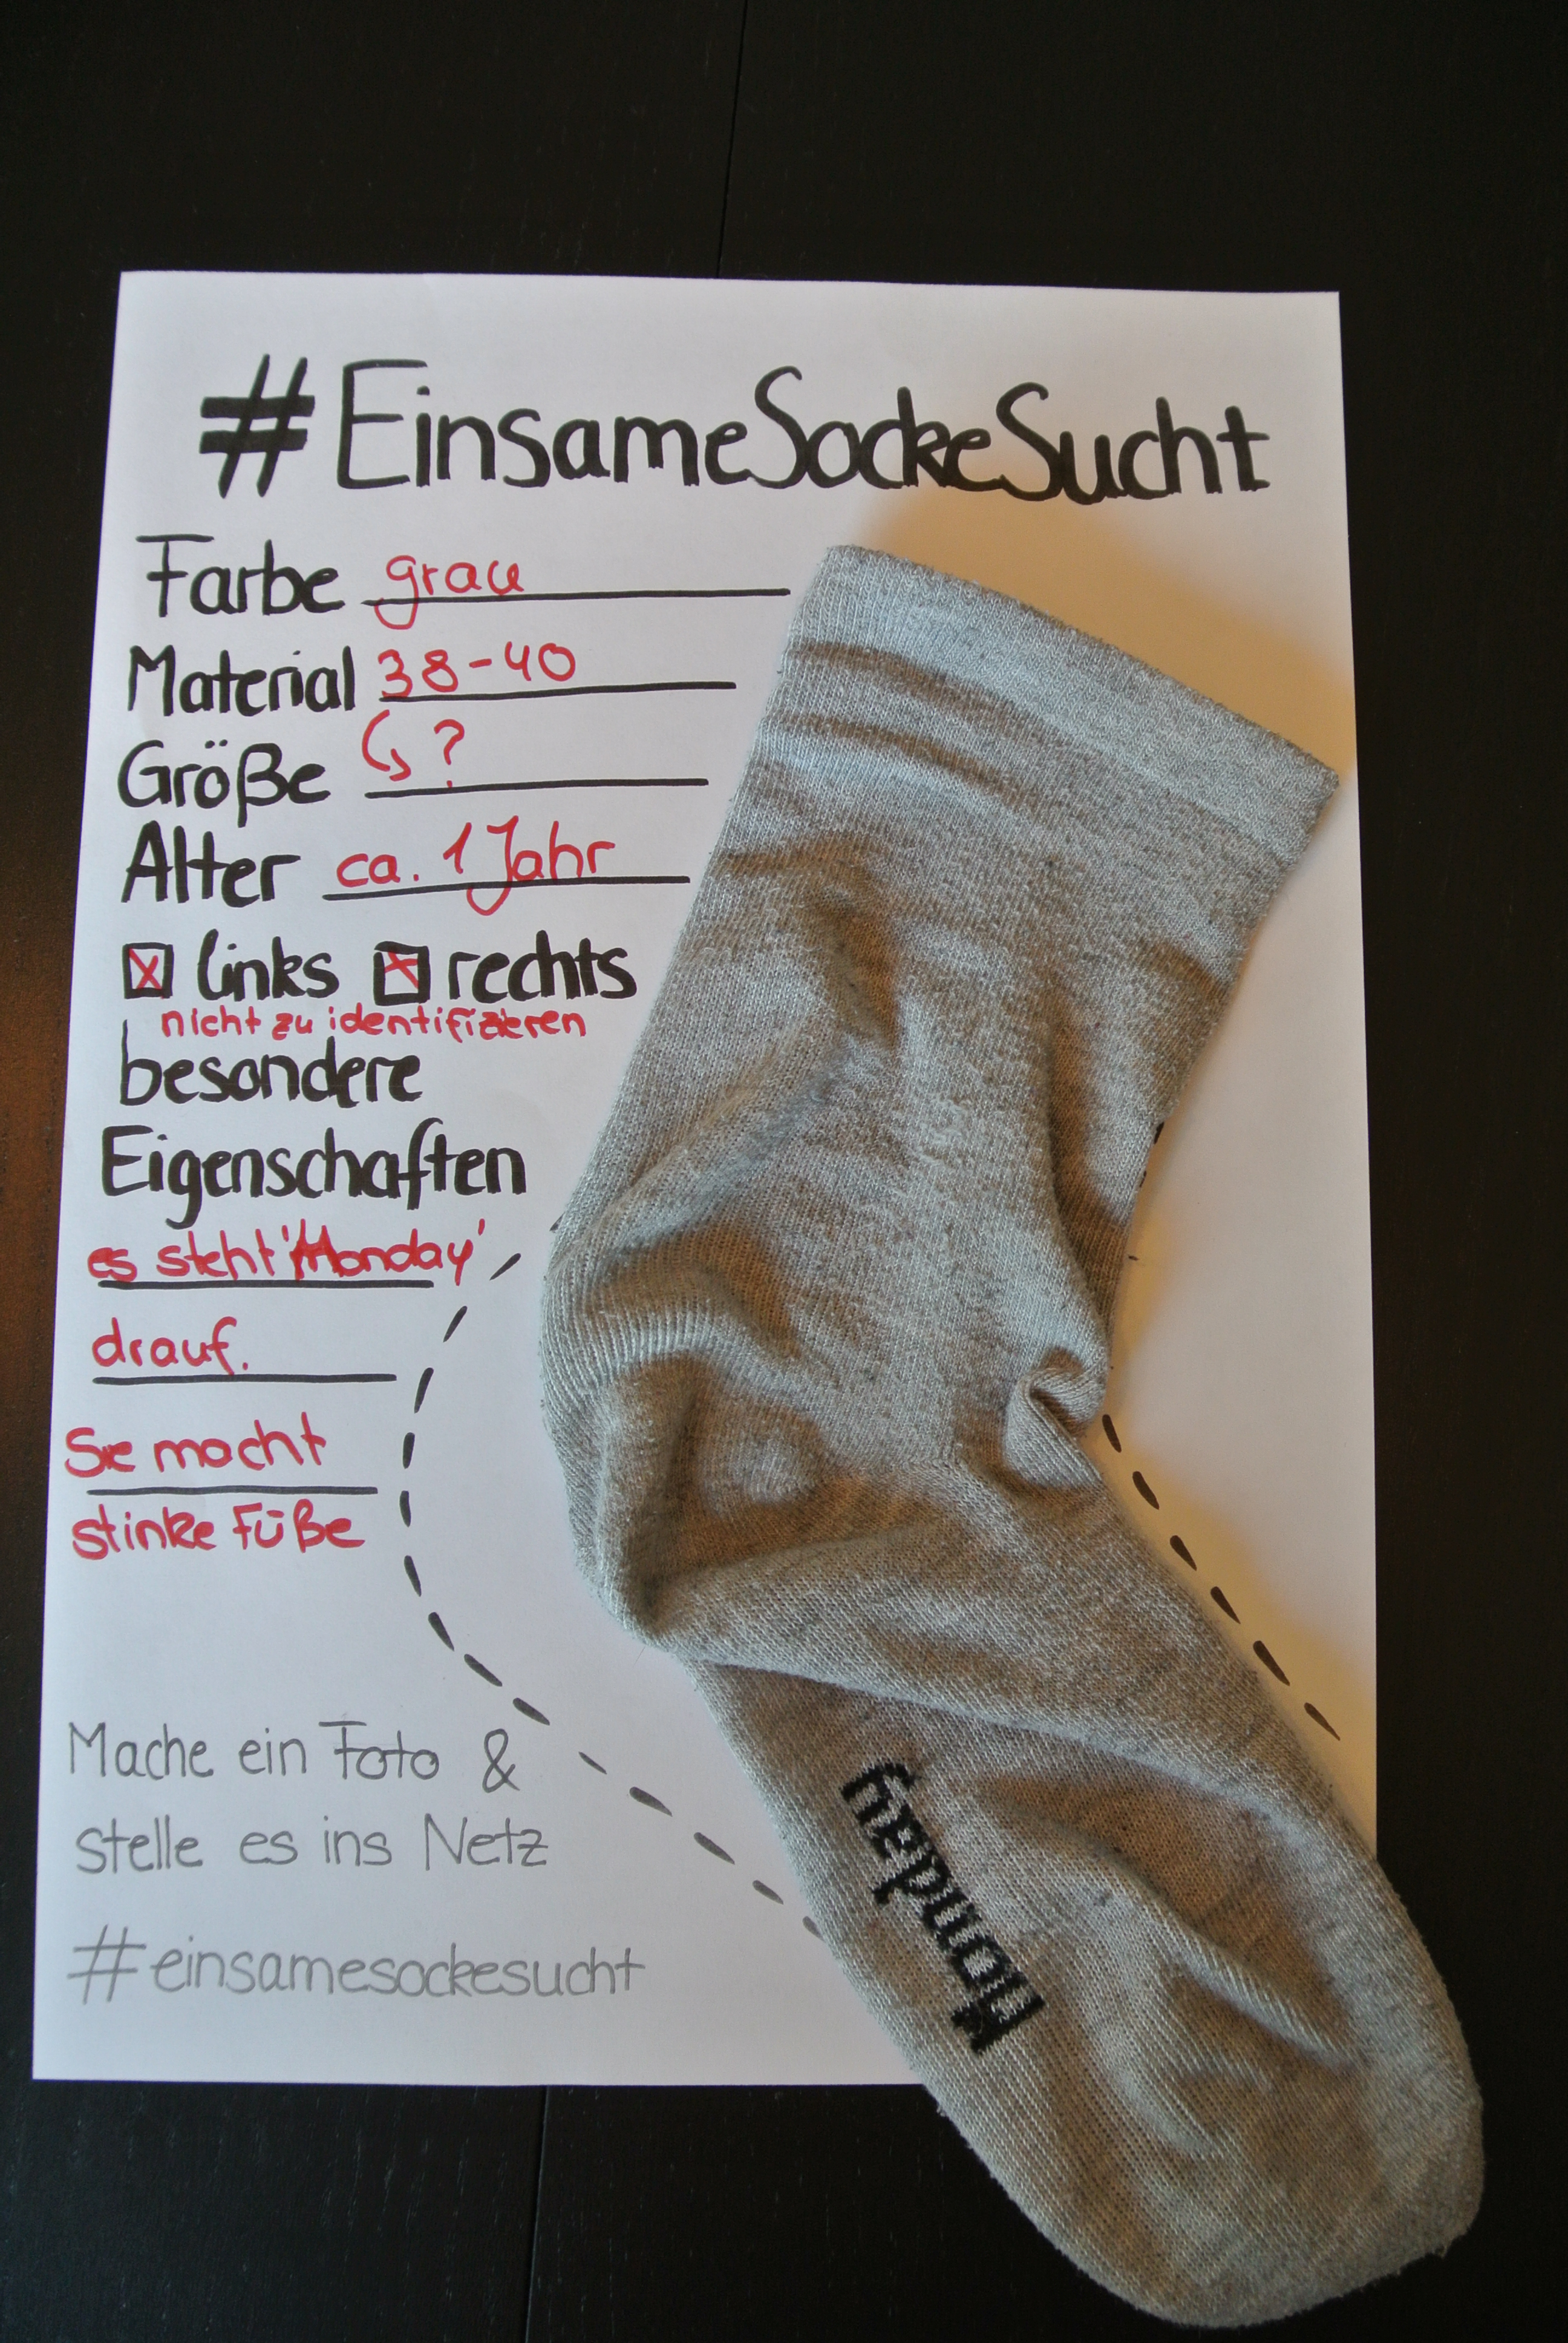 #EinsameSockeSucht
Farbe grau
Material 38-40
Größe ?
Alter ca. 1 Jahr
links rechts
nicht zu identifizieren
besondere
Eigenschaften
es steht 'Monday'
drauf.
Sie macht
stinke Füße
Mache ein Foto &
stelle es ins Netz
#einsamesockesucht
Monday